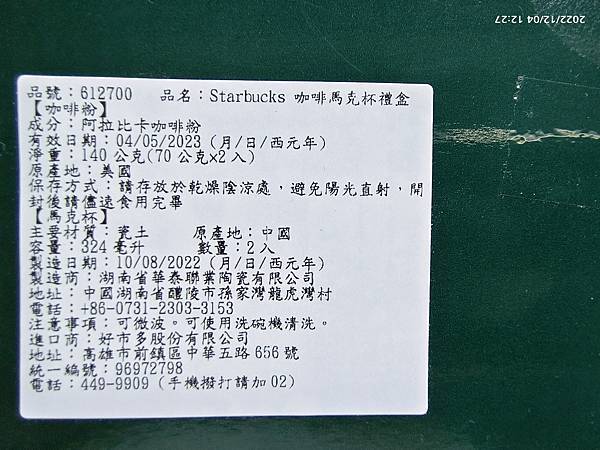 2022/12/04 12:27
品號：612700　品名：Starbucks 咖啡馬克杯禮盒
【咖啡粉】
成分：阿拉比卡咖啡粉
有效日期：04/05/2023（月/日/西元年）
淨重：140 公克(70 公克×2入)
原產地：美國
保存方式：請存放於乾燥陰涼處，避免陽光直射，開
封後請儘速食用完畢
【馬克杯】
主要材質：瓷土　　原產地：中國
容量：324 毫升　　數量：2入
製造日期：10/08/2022（月/日/西元年）
製造商：湖南省華泰聯業陶瓷有限公司
地址：中國湖南省醴陵市孫家灣龍虎灣村
電話：+86-0731-2303-3153
注意事項：可微波。可使用洗碗機清洗。
進口商：好市多股份有限公司
地址：高雄市前鎮區中華五路 656 號
統一編號：96972798
電話：449-9909（手機撥打請加 02）